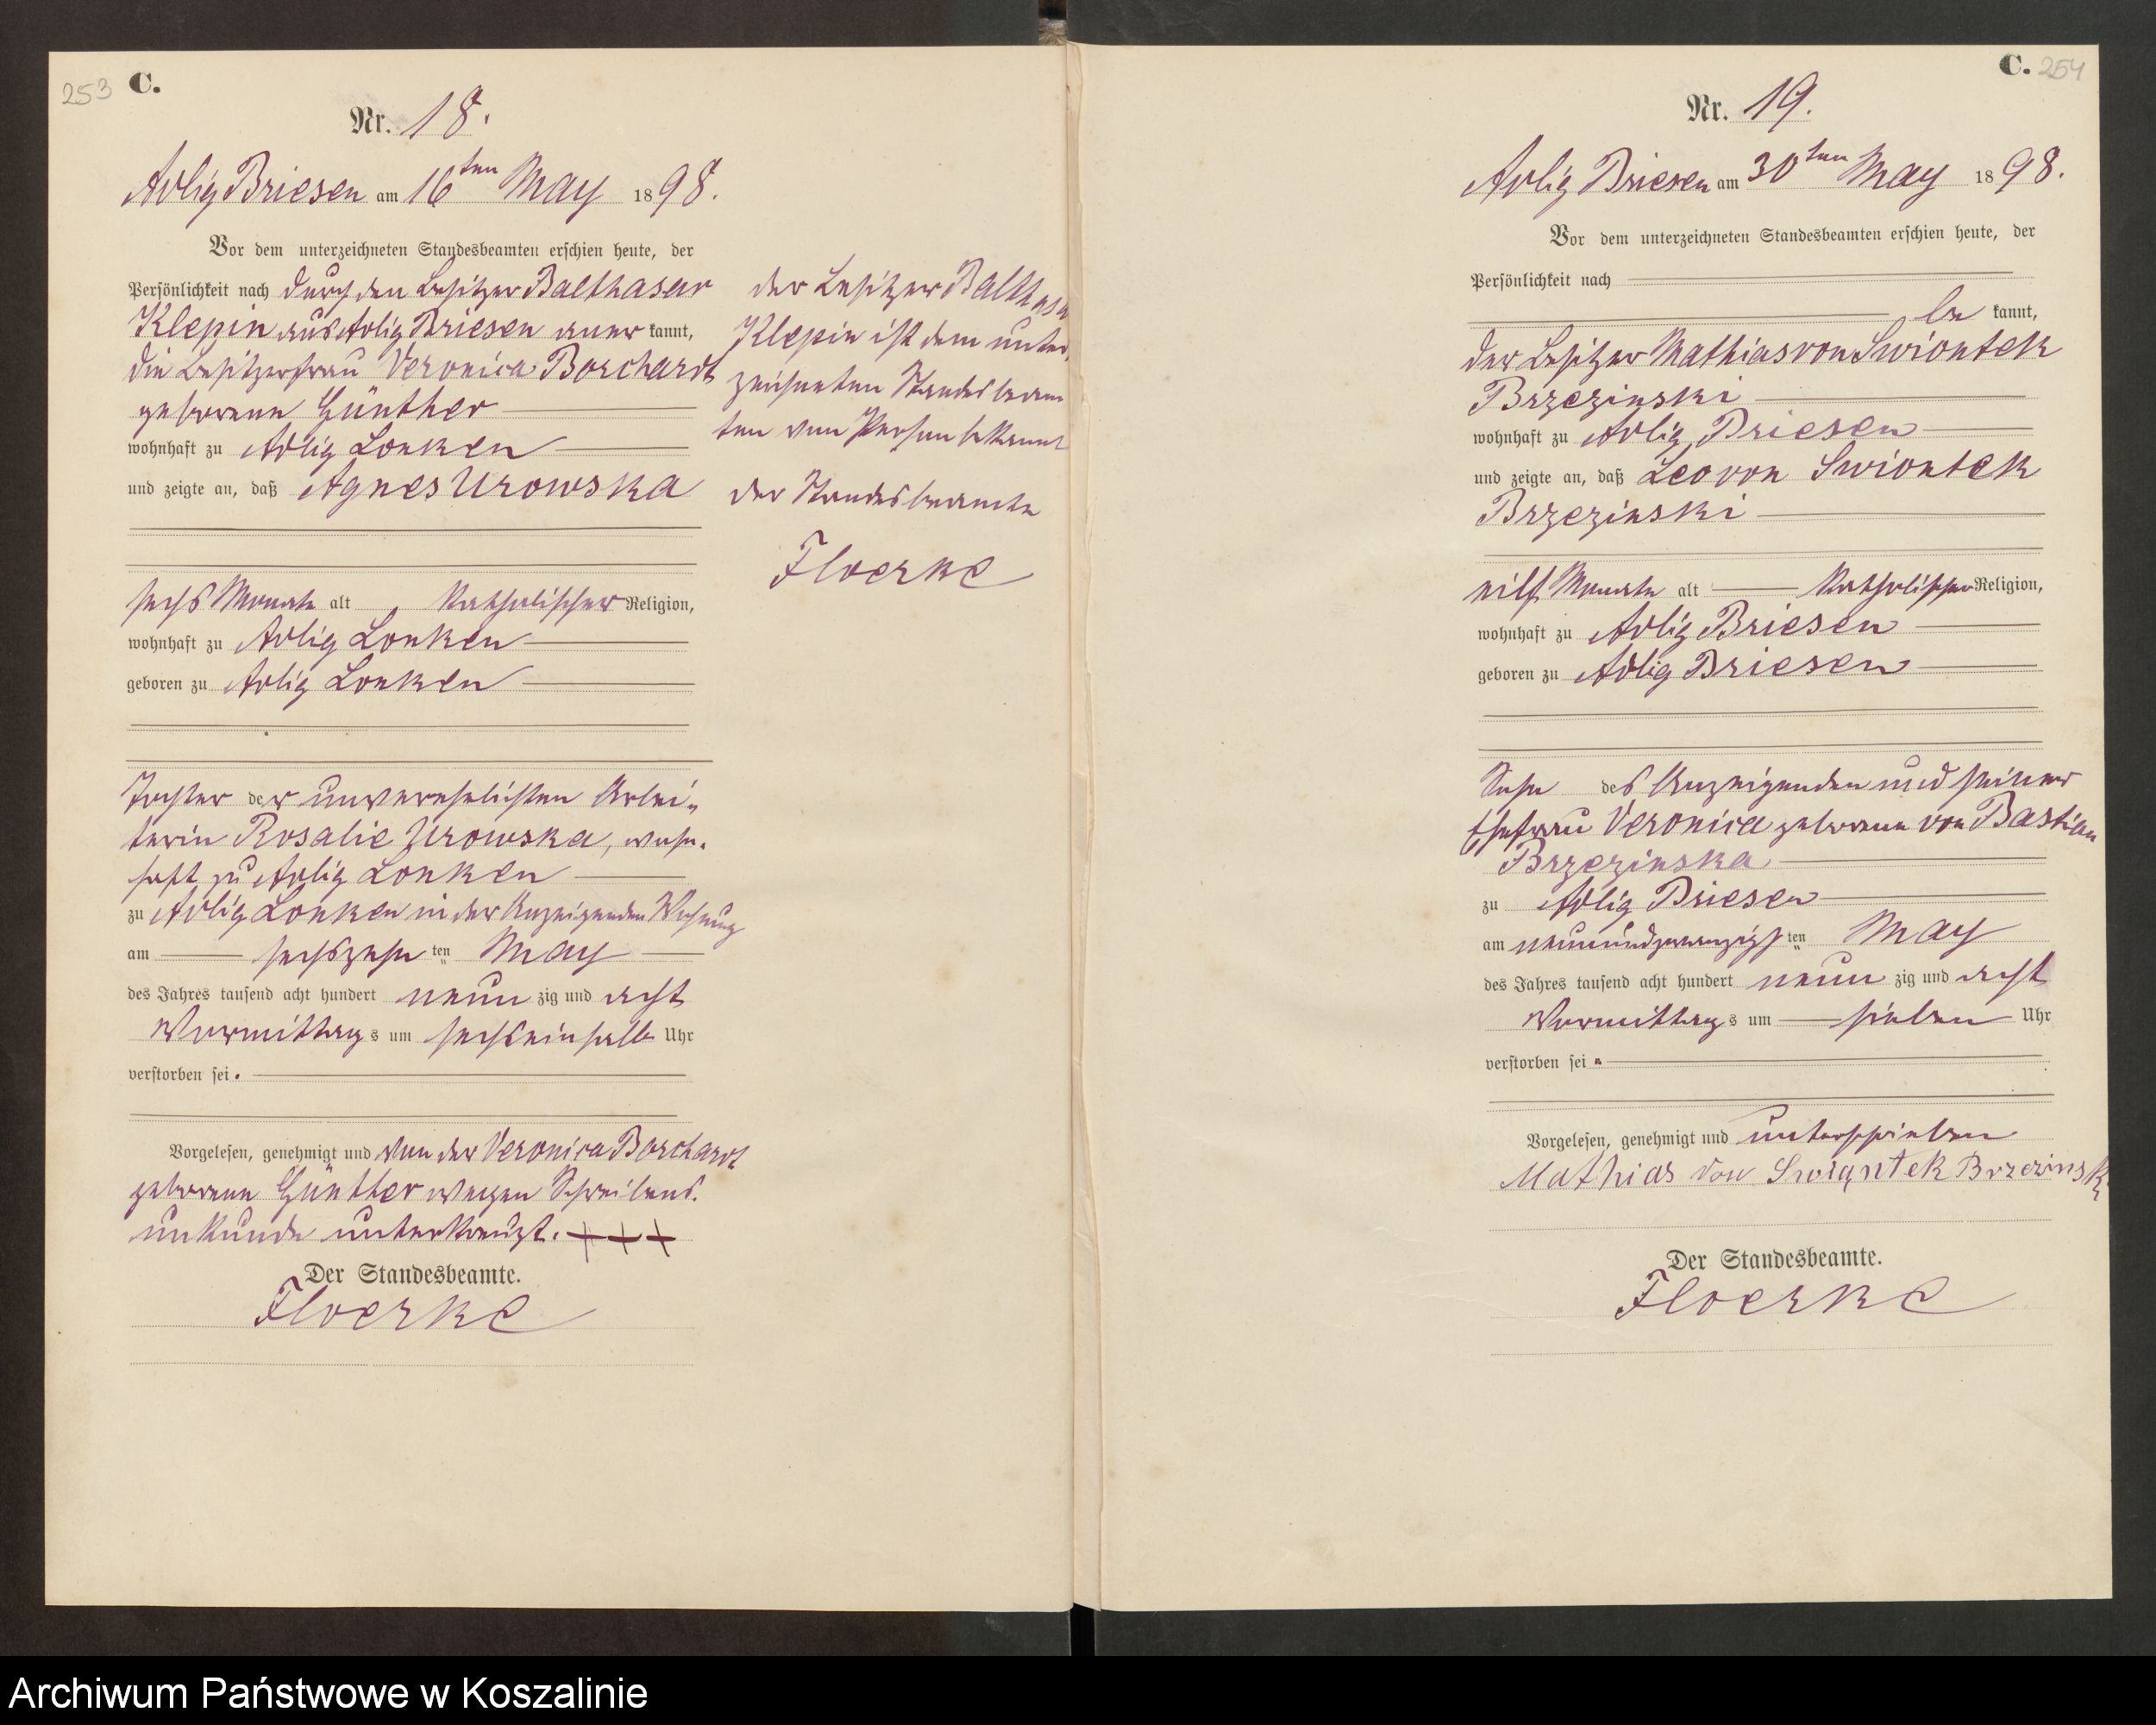 253
C.
Nr. 18.
Adlig Briesen am 16ten May 1898.
Vor dem unterzeichneten Standesbeamten erschien heute, der
Persönlichkeit nach durch den Besitzer Balthasar
Klepin aus Adlig Briesen aner kannt,
die Besitzerfrau Veronica Borchardt
geborene Günther
wohnhaft zu Adlig Lonken
und zeigte an, daß Agnes Urowska
sechs Monate alt katholischer Religion,
wohnhaft zu Adlig Lonken
geboren zu Adlig Lonken
Tochter der unverehelichten Arbei-
terin Rosalie Urowska, wohn-
haft zu Adlig Lonken
zu Adlig Lonken in der Anzeigenden Wohnung
am sechszehn ten May
des Jahres tausend acht hundert neun zig und acht
Vormittags um sechseinhalb Uhr
verstorben sei.
Vorgelesen, genehmigt und von der Veronica Borchardt
geborene Günther wegen Schreibens-
unkunde unterkreuzt. +++
Der Standesbeamte.
Floerke
der Besitzer Balthasa
Klepin ist dem unter-
zeichneten Standesbeam
ten von Person bekannt
der Standesbeamte
Floerke
C. 254
Nr. 19.
Adlig Briesen am 30ten May 1898.
Vor dem unterzeichneten Standesbeamten erschien heute, der
Persönlichkeit nach
be kannt,
der Besitzer Mathias von Swiontek
Brzezinski
wohnhaft zu Adlig Briesen
und zeigte an, daß Leo von Swiontek
Brzezinski
eilf Monate alt katholischer Religion,
wohnhaft zu Adlig Briesen
geboren zu Adlig Briesen
Sohn des Anzeigenden und seiner
Ehefrau Veronica geborene von Bastian
Brzezinska
zu Adlig Briesen
am neunundzwanzigsten May
des Jahres tausend acht hundert neun zig und acht
Vormittags um sieben Uhr
verstorben sei.
Vorgelesen, genehmigt und unterschrieben
Mathias von Swiąntek Brzezinski
Der Standesbeamte.
Floerke
Archiwum Państwowe w Koszalinie